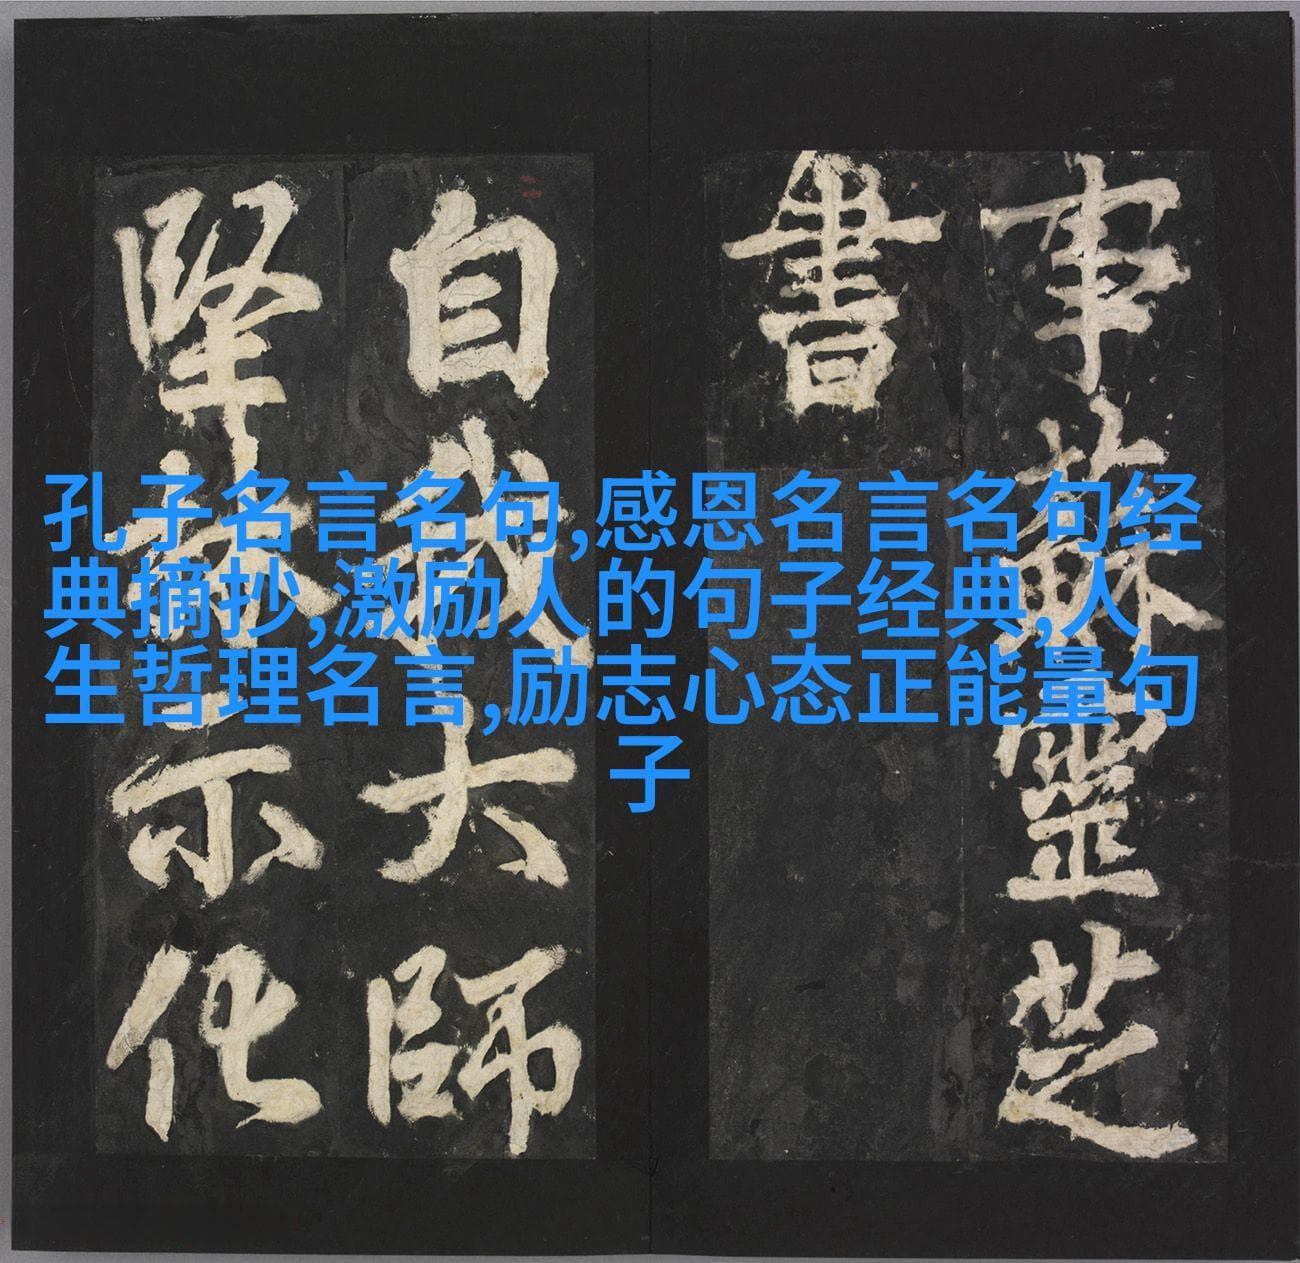 事蘇靈芝
書
自我大師
示化
孔子名言名句,感恩名言名句经
典摘抄,激励人的句子经典,人
生哲理名言,励志心态正能量句
子